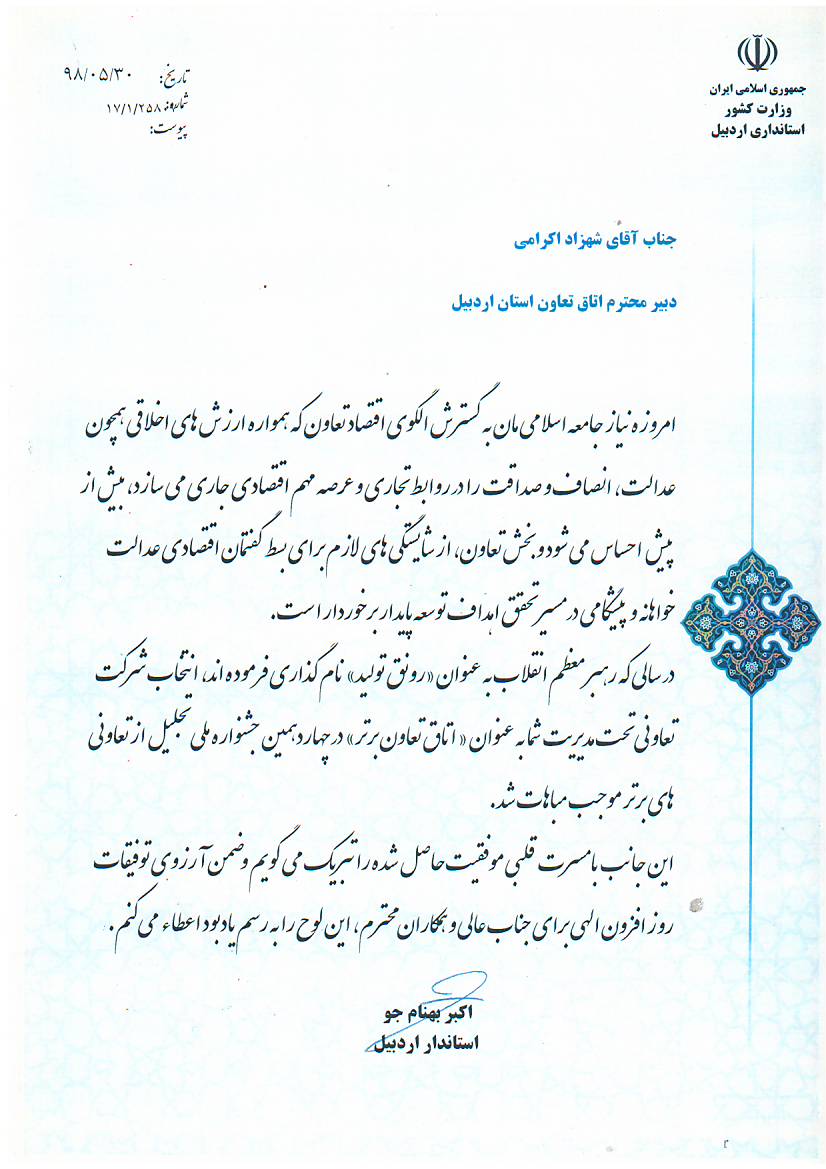 جمهوری اسلامی ایران
وزارت کشور
استانداری اردبیل
تاریخ: ۹۸/۰۵/۳۰
شماره: ۱۷/۱/۲۵۸
پیوست:
جناب آقای شهزاد اکرامی
دبیر محترم اتاق تعاون استان اردبیل
امروزه نیاز جامعه اسلامی مان به گسترش الگوی اقتصاد تعاون که همواره ارزش های اخلاقی همچون
عدالت، انصاف و صداقت را در روابط تجاری و عرصه مهم اقتصادی جاری می سازد، بیش از
پیش احساس می شود و بخش تعاون، از شایستگی های لازم برای بسط گفتمان اقتصادی عدالت
خواهانه و پیشگامی در مسیر تحقق اهداف توسعه پایدار برخوردار است.
در سالی که رهبر معظم انقلاب به عنوان «رونق تولید» نام گذاری فرموده اند، انتخاب شرکت
تعاونی تحت مدیریت شما به عنوان «اتاق تعاون برتر» در چهاردهمین جشنواره ملی تجلیل از تعاونی
های برتر موجب مباهات شد.
این جانب با مسرت قلبی موفقیت حاصل شده را تبریک می گویم و ضمن آرزوی توفیقات
روز افزون الهی برای جناب عالی و همکاران محترم، این لوح را به رسم یادبود اعطاء می کنم.
اکبر بهنام جو
استاندار اردبیل